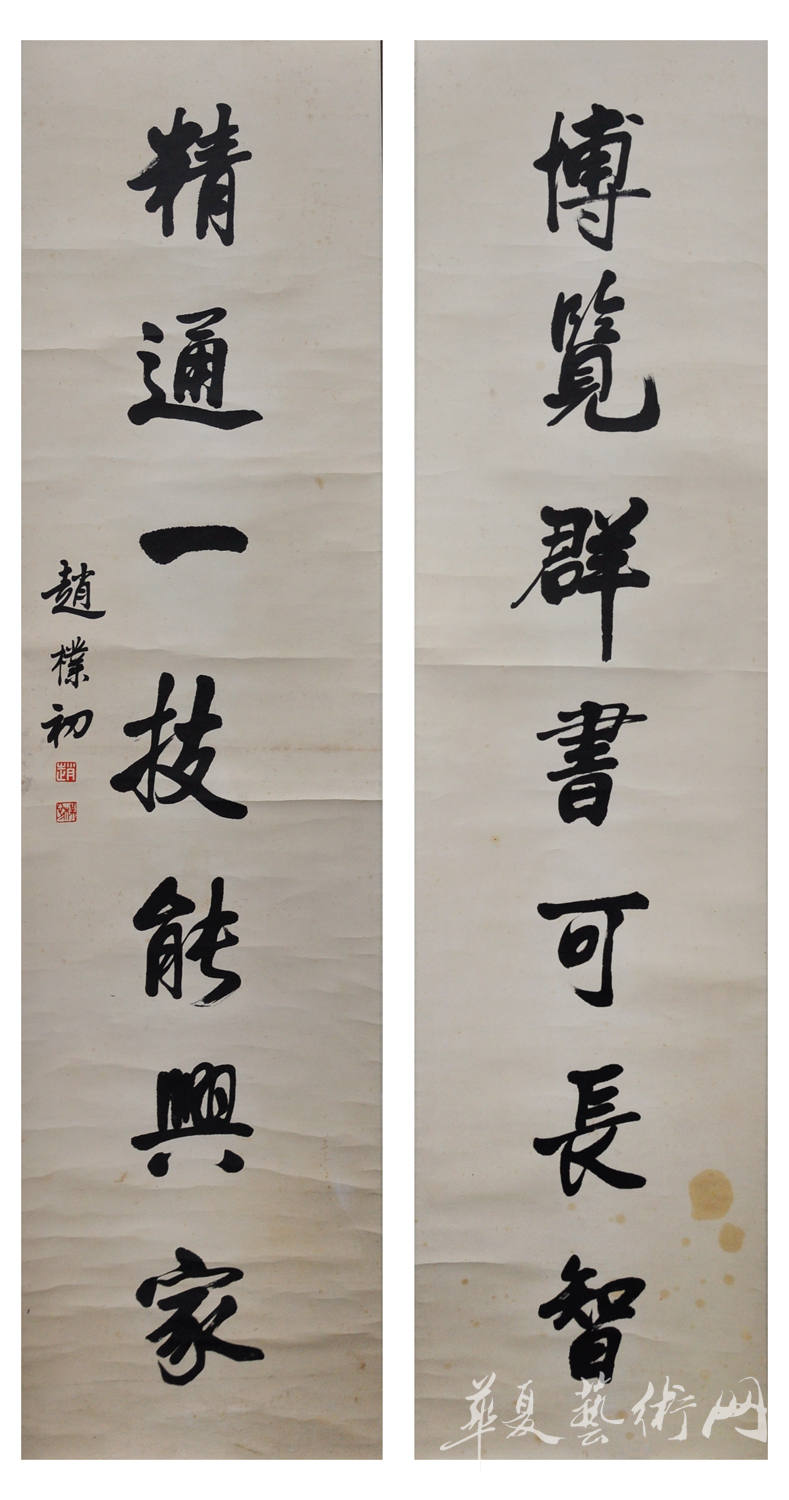 博覽群書可長智
精通一技能興家
趙樸初
華夏藝術网